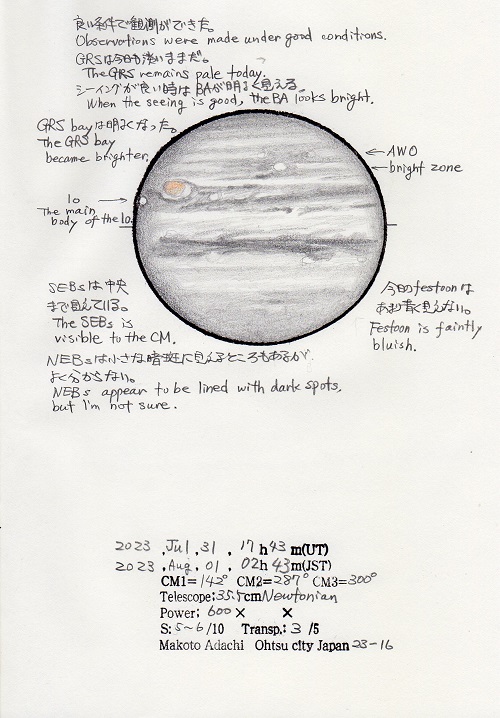 良い条件で観測ができた。
Observations were made under good conditions.
GRSは今日も淡いままだ。
The GRS remains pale today.
シーイングが良い時はBAが明るく見える。
When the seeing is good, the BA looks bright.
GRS bayは明るくなった。
The GRS bay
became brighter.
← AWO
← bright zone
Io →
The main
body of the Io.
SEBsは中央
まで見えている。
The SEBs is
visible to the CM.
今日のfestoonは
あまり青く見えない。
Festoon is faintly
bluish.
NEBsは小さな暗斑に見えるところもあるが
よく分からない。
NEBs appear to be lined with dark spots,
but I'm not sure.
2023 , Jul , 31 , 17 h 43 m(UT)
2023 , Aug , 01 , 02h 43m(JST)
CM1= 142° CM2= 287° CM3= 300°
Telescope: 35.5cm Newtonian
Power: 600 × ×
S: 5~6 /10 Transp.: 3 /5
Makoto Adachi Ohtsu city Japan 23-16